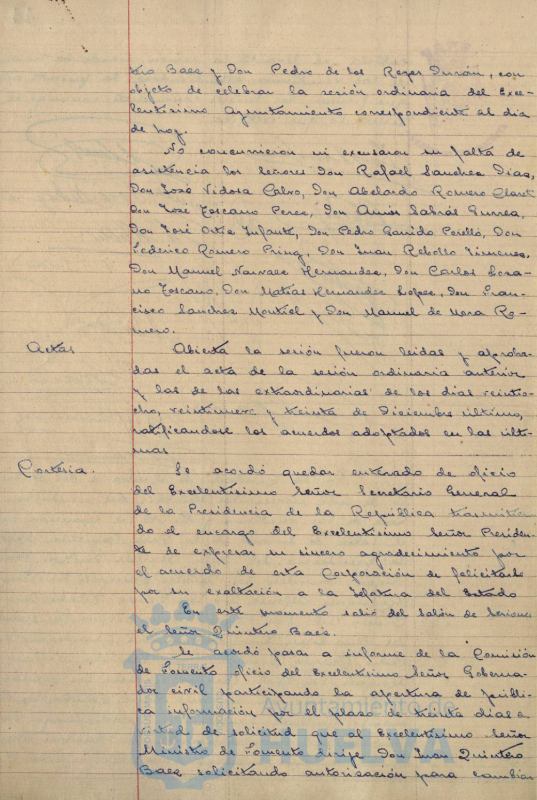 trio Baez y Don Pedro de los Reyes Durán, con
objeto de celebrar la sesión ordinaria del Exce-
lentísimo Ayuntamiento correspondiente al dia
de hoy.
No concurrieron ni excusaron su falta de
asistencia los señores Don Rafael Sanchez Diaz,
Don José Vidosa Calvo, Don Abelardo Romero Claret
Don José Toscano Perez, Don Amós Sabrás Gurrea,
Don José Ortiz Infante, Don Pedro Garrido Perelló, Don
Federico Romero Pring, Don Juan Rebollo Jimenez,
Don Manuel Narvaez Hernandez, Don Carlos Loza-
no Toscano, Don Matias Hernandez Lopez, Don Fran-
cisco Sanchez Montiel y Don Manuel de Mora Ro-
mero.
Actas
Abierta la sesión fueron leidas y aproba-
das el acta de la sesión ordinaria anterior
y las de las extraordinarias de los dias veintio-
cho, veintinueve y treinta de Diciembre último,
ratificandose los acuerdos adoptados en las últi-
mas
Cortesia.
Se acordó quedar enterado de oficio
del Excelentísimo Señor Secretario General
de la Presidencia de la República transmitien
do el encargo del Excelentísimo Señor Presiden-
te de expresar su sincero agradecimiento por
el acuerdo de esta Corporación de felicitarle
por su exaltación a la Jefatura del Estado
En este momento salió del Salón de Sesiones
el señor Quintero Baez.
Se acordó pasar a informe de la Comisión
de Fomento oficio del Excelentísimo Señor Goberna-
dor civil participando la apertura de públi-
ca información por el plazo de treinta dias a
virtud de solicitud que al Excelentísimo Señor
Ministro de Fomento dirije Don Juan Quintero
Baez solicitando autorización para cambiar
Ayuntamiento de
HUELVA